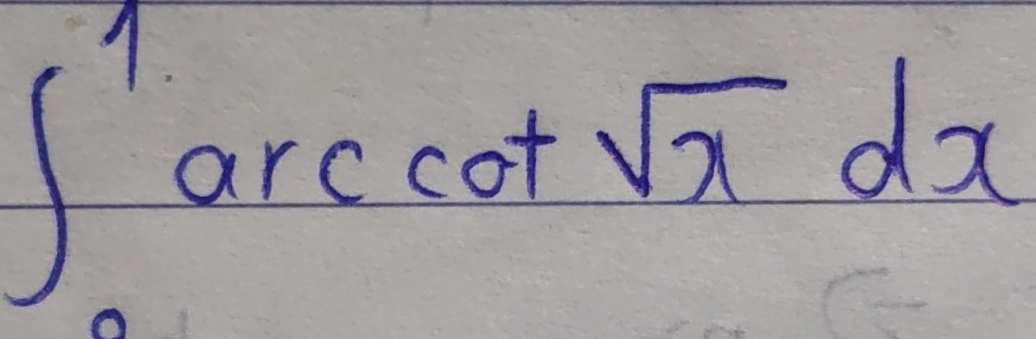 ∫₀¹ arc cot √x dx